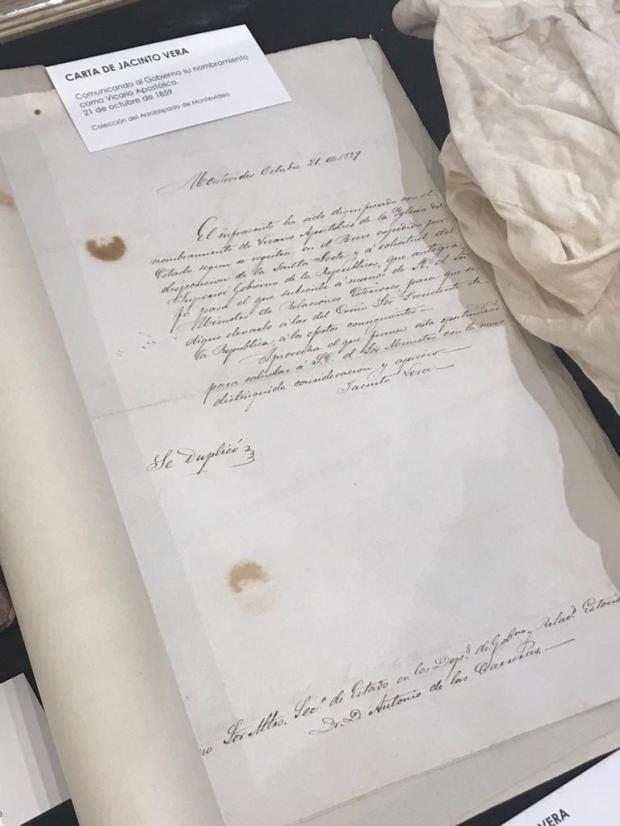 CARTA DE JACINTO VERA
Comunicando al Gobierno su nombramiento
como Vicario Apostólico.
21 de octubre de 1859
Colección del Arzobispado de Montevideo
Montevideo Octubre 21 de 1859
El infrascrito ha sido dignificado con el
nombramiento de Vicario Apostolico de la Iglesia del
Estado segun se registra en el Breve expedido por
disposicion de la Santta Sede y á solicitud del
Superior Gobierno de la Republica, que
para el que subscribe á manos de S.E. el Sor
Ministro de Relaciones Exteriores, para que se
digne elevarlo á las del Exmo Sor Presidente de
la Republica, á los efectos consiguientes—
Aprovecha el que firma esta oportunidad
para saludar á S.E. el Sor Ministro con la mas
distinguida consideracion y aprecio—
Jacinto Vera—
Se Duplicó
Sor Mtro. Secº de Estado en los Depˢ de Gobno y Relacˢ Exterio
Dr. D. Antonio de las Carreras.—
VERA